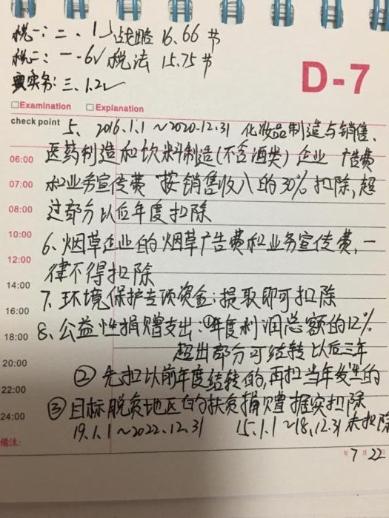 税一:二、1 战略 16.66节
税二:一-6 税法 15.75节
实务:三、1.2
D-7
Examination Explanation
check point 5、2016.1.1~2020.12.31 化妆品制造与销售、
06:00 医药制造和饮料制造(不含酒类)企业 广告费
07:00 和业务宣传费 按销售收入的30%扣除,超
08:00 过部分以后年度扣除
09:00 6、烟草企业的烟草广告费和业务宣传费,一
12:00 律不得扣除
14:00 7、环境保护专项资金:提取即可扣除
16:00 8、公益性捐赠支出:①年度利润总额的12%
18:00 超出部分可结转以后三年
20:00 ②先扣以前年度结转的,再扣当年发生的
22:00 ③目标脱贫地区的扶贫捐赠据实扣除
24:00 19.1.1~2022.12.31 15.1.1~18.12.31未扣除
备注:
7月22